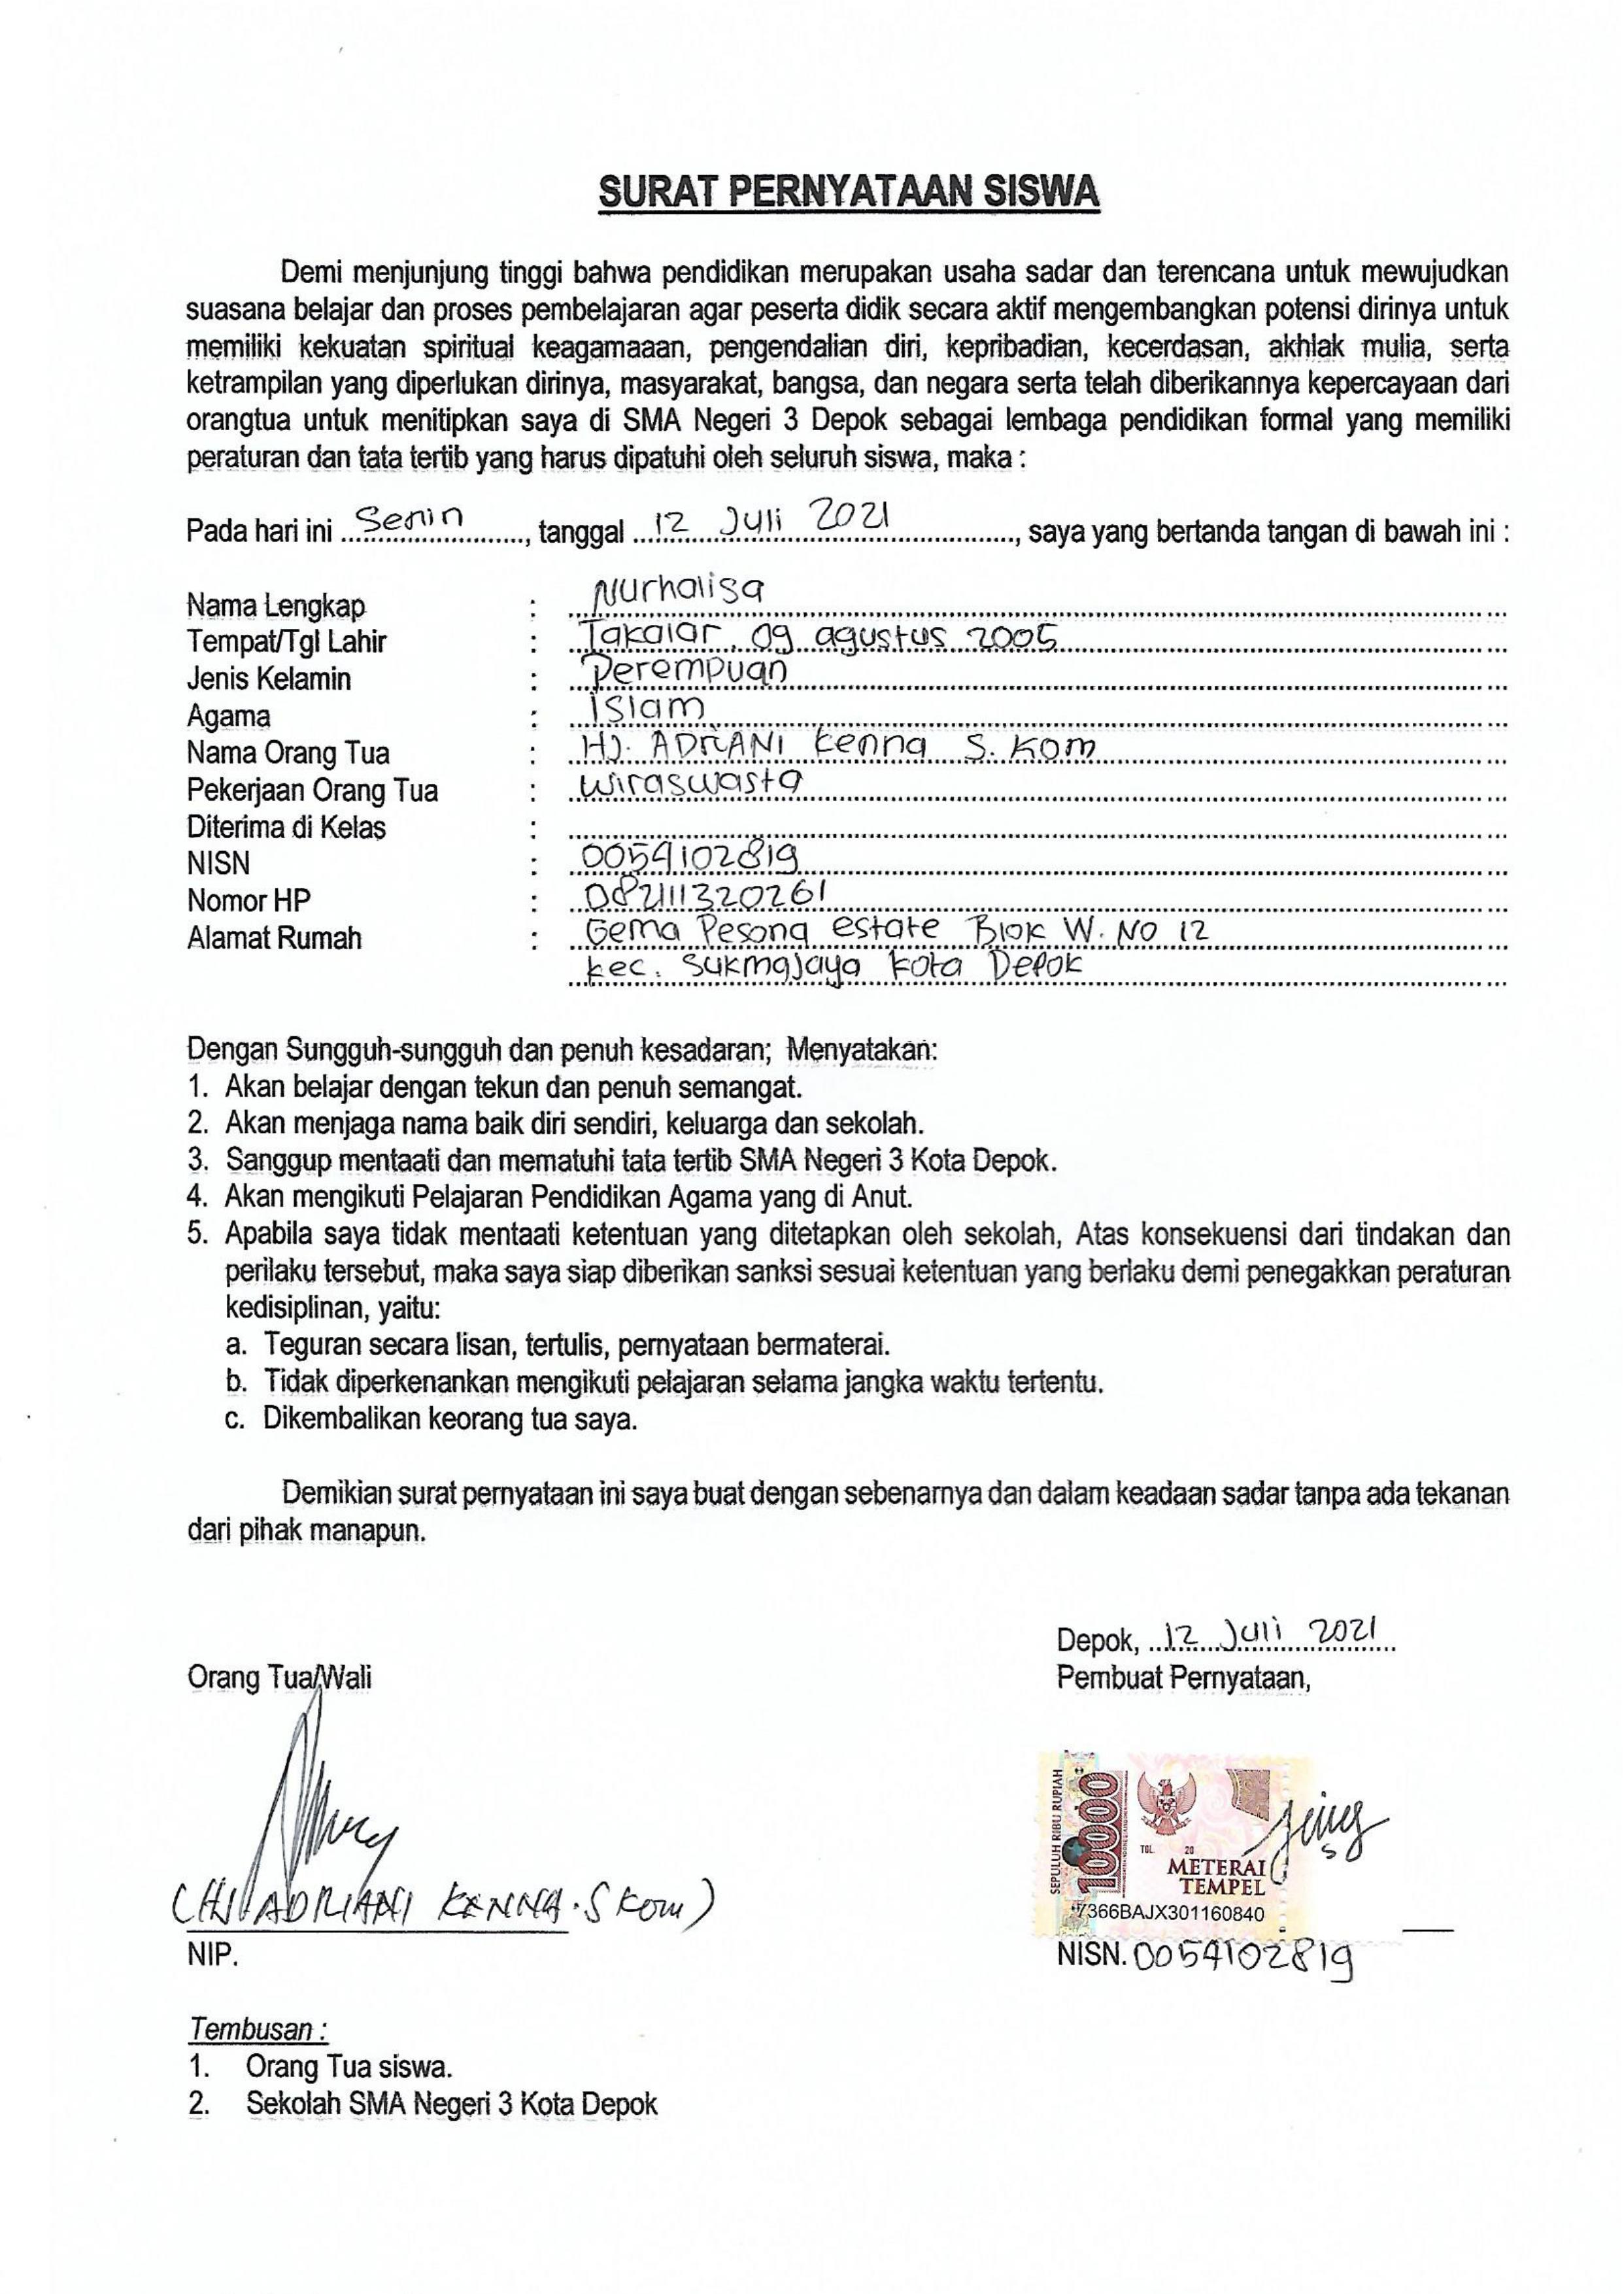 SURAT PERNYATAAN SISWA
Demi menjunjung tinggi bahwa pendidikan merupakan usaha sadar dan terencana untuk mewujudkan
suasana belajar dan proses pembelajaran agar peserta didik secara aktif mengembangkan potensi dirinya untuk
memiliki kekuatan spiritual keagamaaan, pengendalian diri, kepribadian, kecerdasan, akhlak mulia, serta
ketrampilan yang diperlukan dirinya, masyarakat, bangsa, dan negara serta telah diberikannya kepercayaan dari
orangtua untuk menitipkan saya di SMA Negeri 3 Depok sebagai lembaga pendidikan formal yang memiliki
peraturan dan tata tertib yang harus dipatuhi oleh seluruh siswa, maka :
Pada hari ini Senin, tanggal 12 Juli 2021, saya yang bertanda tangan di bawah ini :
Nama Lengkap : Nurhalisa
Tempat/Tgl Lahir : Takalar, 09 agustus 2005
Jenis Kelamin : Perempuan
Agama : Islam
Nama Orang Tua : HJ. ADRIANI kenna S. Kom
Pekerjaan Orang Tua : Wiraswasta
Diterima di Kelas :
NISN : 0054102819
Nomor HP : 082111320261
Alamat Rumah : Gema Pesona estate Blok W. NO 12
kec. Sukmajaya kota Depok
Dengan Sungguh-sungguh dan penuh kesadaran; Menyatakan:
1. Akan belajar dengan tekun dan penuh semangat.
2. Akan menjaga nama baik diri sendiri, keluarga dan sekolah.
3. Sanggup mentaati dan mematuhi tata tertib SMA Negeri 3 Kota Depok.
4. Akan mengikuti Pelajaran Pendidikan Agama yang di Anut.
5. Apabila saya tidak mentaati ketentuan yang ditetapkan oleh sekolah, Atas konsekuensi dari tindakan dan
perilaku tersebut, maka saya siap diberikan sanksi sesuai ketentuan yang berlaku demi penegakkan peraturan
kedisiplinan, yaitu:
a. Teguran secara lisan, tertulis, pernyataan bermaterai.
b. Tidak diperkenankan mengikuti pelajaran selama jangka waktu tertentu.
c. Dikembalikan keorang tua saya.
Demikian surat pernyataan ini saya buat dengan sebenarnya dan dalam keadaan sadar tanpa ada tekanan
dari pihak manapun.
Depok, 12 Juli 2021
Orang Tua/Wali
Pembuat Pernyataan,
SEPULUH RIBU RUPIAH
10000
TGL. 20
METERAI
TEMPEL
7366BAJX301160840
(HJ ADRIANI KENNA. S Kom)
NIP.
NISN. 0054102819
Tembusan :
1. Orang Tua siswa.
2. Sekolah SMA Negeri 3 Kota Depok